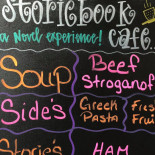 Storiebook
Cafe.
a Novel experience!
Soup
Beef
Stroganof
Side's
Greek
Pasta
Storie's
HAM